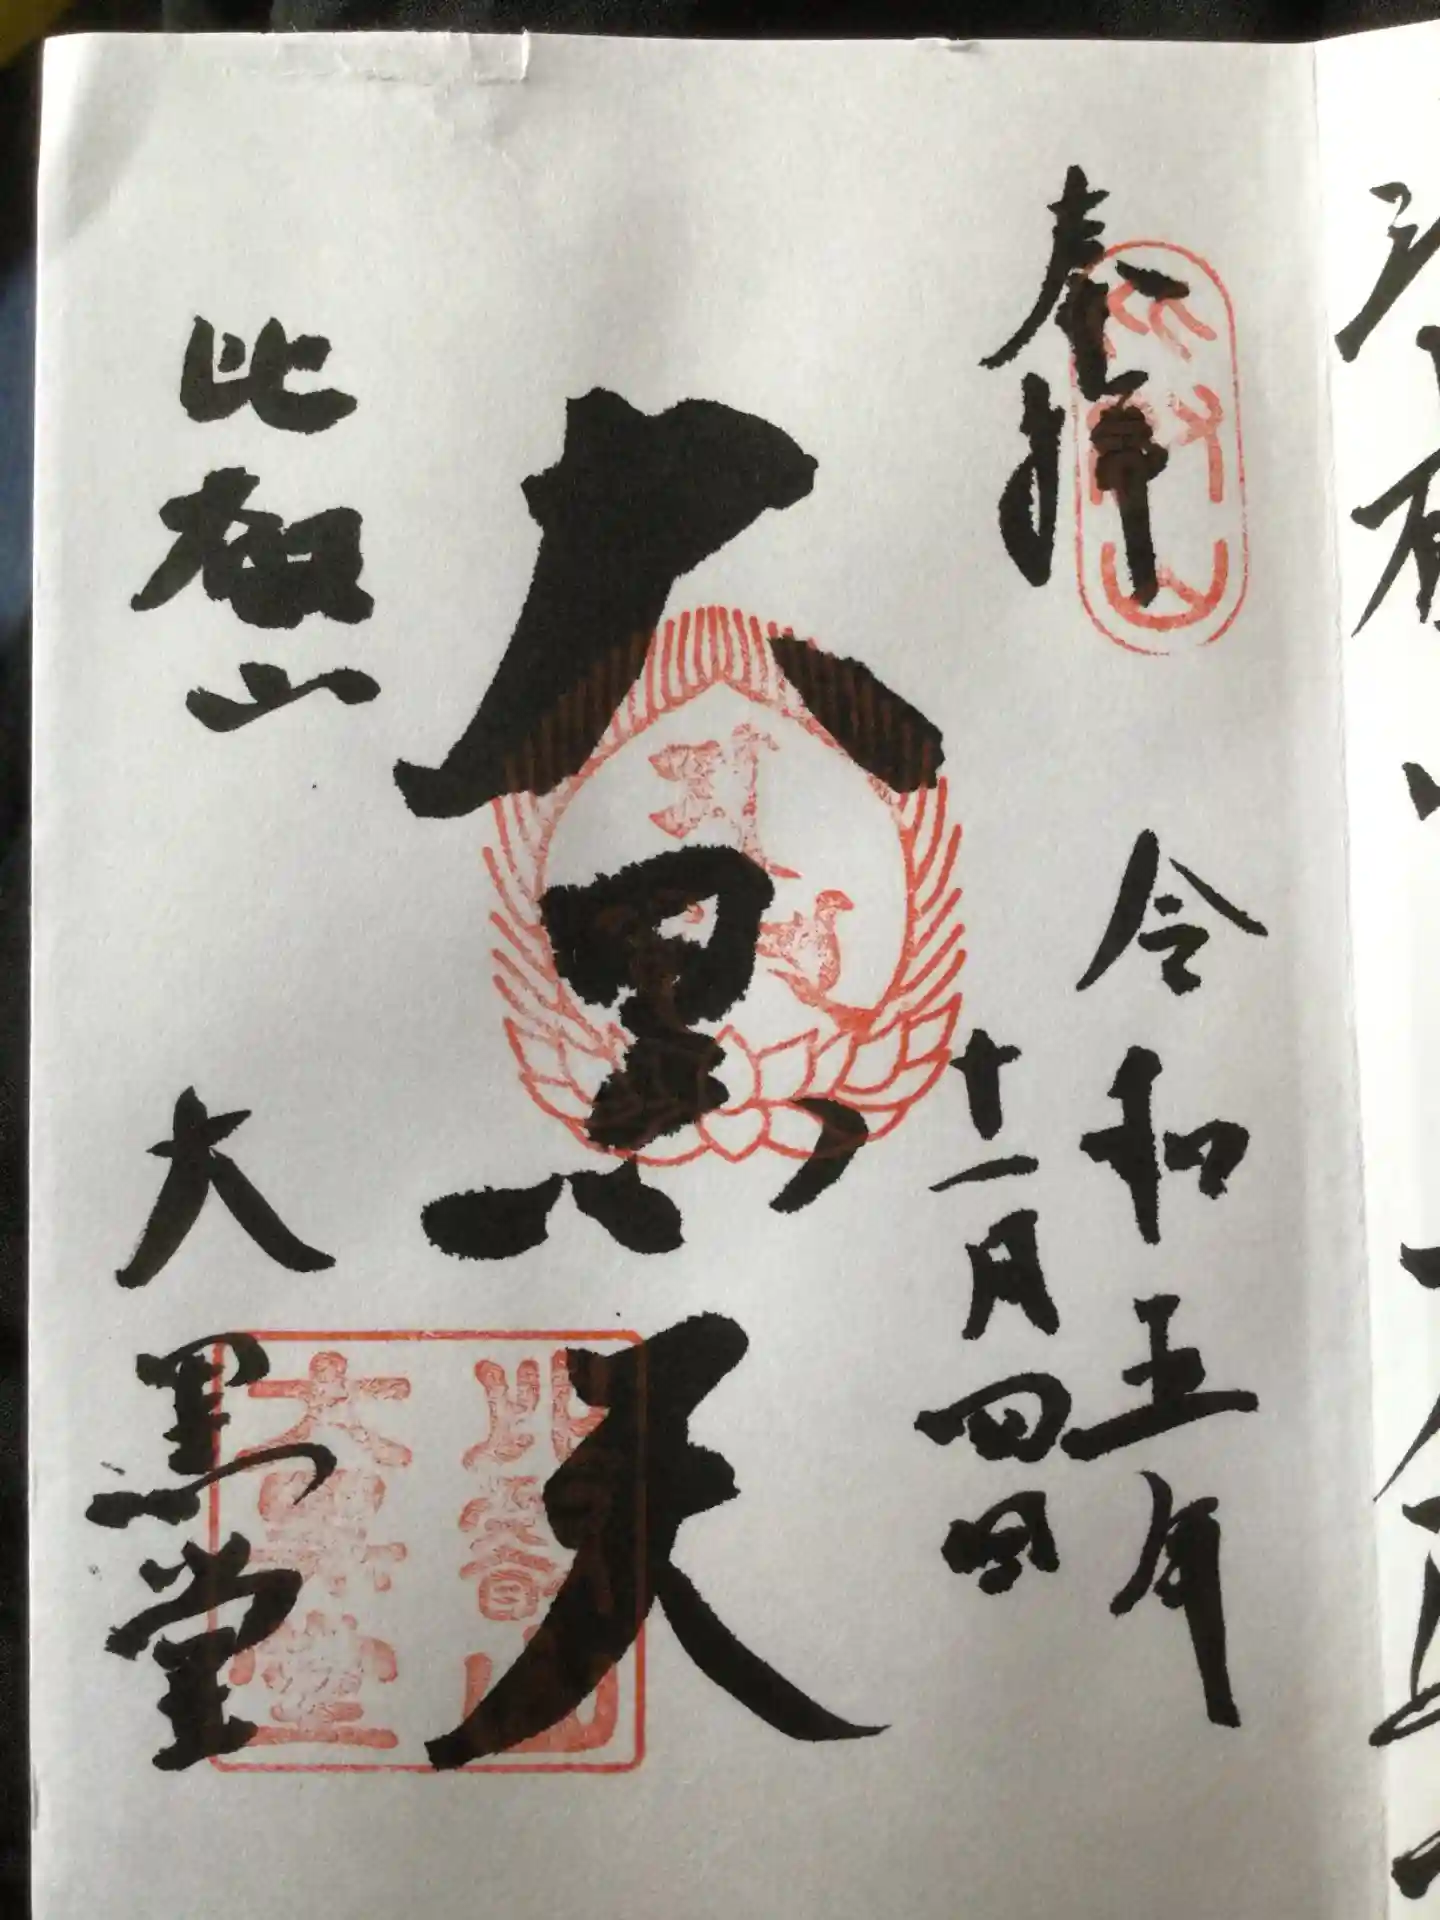 奉拝
令和五年
十一月四日
大黒天
比叡山
大黒堂
比叡山
大黒堂